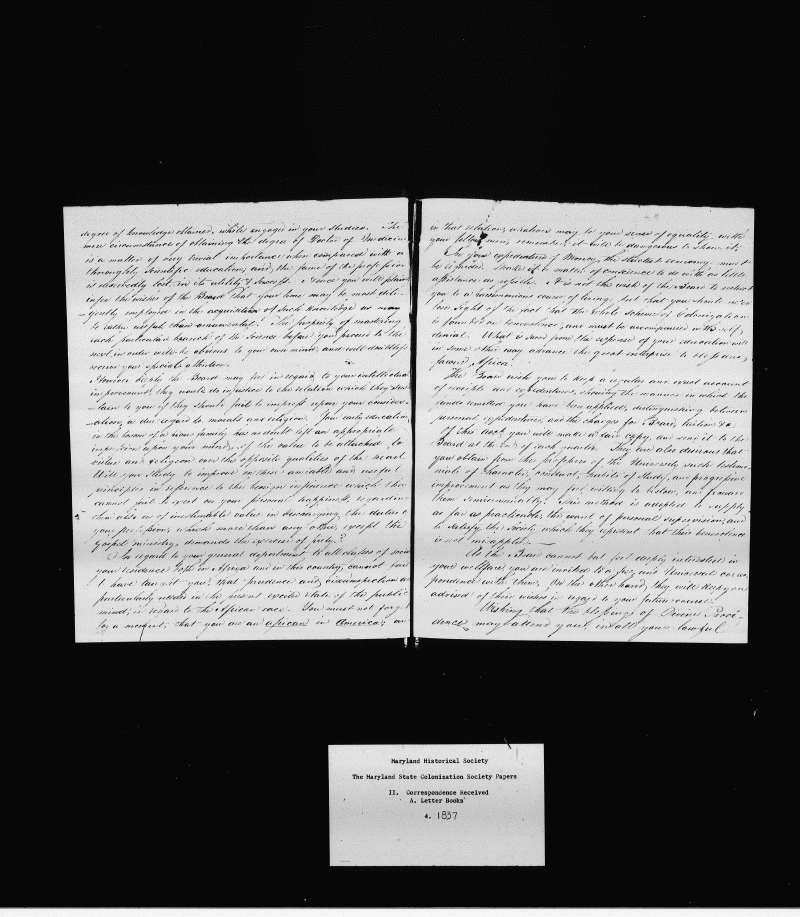 degree of knowledge attained, while engaged in your studies. The
mere circumstance of obtaining the degree of Doctor of Medicine
is a matter of very trivial importance when compared with a
thorough, scientific education, and, the fame of the profession
is decidedly lost, in its utility & success. Hence you will plainly
infer the wishes of the Board that your time may be most dili-
-gently employed in the acquisition of such knowledge as may
be rather useful than ornamental. The propriety of mastering
each particular branch of the Science before you proceed to the
next in order will be obvious to your own mind, and will doubtless
receive your special attention.
However deeply the Board may feel in regard to your intellectual
improvement, they would do injustice to the relation which they sus-
-tain to you if they should fail to impress upon your consider-
-ation, a due regard to morals and religion. Your early education,
in the bosom of a pious family has no doubt left an appropriate
impression upon your mind, of the value to be attached to
virtue and religion over the opposite qualities of the heart.
Will you study to improve on these amiable and useful
principles in reference to the benign influence which they
cannot fail to exert on your personal happiness, regarding
them also as of inestimable value in discharging the duties of
your profession, which more than any other, except the
gospel ministry, demands the exercise of piety?
In regard to your general deportment, to all classes of society
your residence both in Africa and in this country, cannot fail
to have taught you, that prudence and circumspection are
particularly needed in the present excited state of the public
mind, in regard to the African race. You must not forget
for a moment, that you are an African in America; an
in that relation, whatever may be your sense of equality with
your fellow men, remember it will be dangerous to show it.
In your expenditure of Money, the strictest economy must
be regarded. Make it a matter of conscience to do with as little
assistance as possible. It is not the wish of the Board to restrict
you to a parsimonious course of living, but that you should never
lose sight of the fact that the whole scheme of Colonization
is founded in benevolence, and must be accompanied with self
denial. What is saved from the expense of your education will
in some other way advance the great enterprise to
Africa.
The Board wish you to keep a regular and exact account
of receipts and expenditures, shewing the manner in which the
funds remitted you have been applied, distinguishing between
personal expenditures, and the charges for Board, tuition &c.
Of this account you will make a fair copy, and send it to the
Board at the end of each quarter. They are also desirous that
you obtain from the professors of the University such testimo-
nials of character, conduct, habits of study, and progressive
improvement as they may feel willing to bestow, and forward
them semiannually. This method is adopted to supply
as far as practicable, the want of personal supervision, and
to satisfy the Society which they represent that their benevolence
is not misapplied.
As the Board cannot but feel deeply interested in
your wellfare you are invited to a free and Universal corres-
pondence with them. On the other hand, they will keep you
advised of their wishes in regard to your future course.
Wishing that the blessings of Divine Provi-
dence may attend you, in all your lawful
Maryland Historical Society
The Maryland State Colonization Society Papers
II. Correspondence Received
A. Letter Books
4. 1837